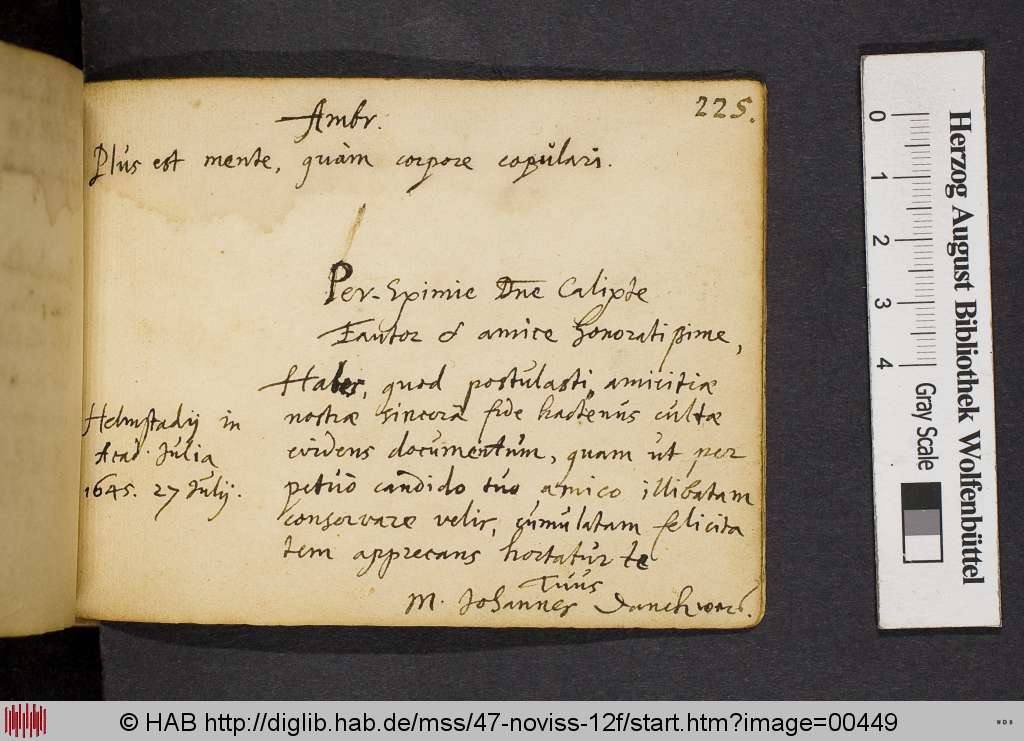 225.
Ambr.
Plus est mente, quàm corpore copulari.
Per-Eximie Dne Calixte
Fautor & amice honoratissime,
Habes, quod postulasti, amicitiæ
nostræ sincerâ fide hactenus cultæ
evidens documentum, quam ut per
petuò candido tuo amico illibatam
conservare velis, cumulatam felicita
tem apprecans hortatur te
Tuus
M. Johannes Danckwers.
Helmstadij in
Acad. Julia
1645. 27 Julij.
Herzog August Bibliothek Wolfenbüttel
0 1 2 3 4 Gray Scale
© HAB http://diglib.hab.de/mss/47-noviss-12f/start.htm?image=00449
WDB